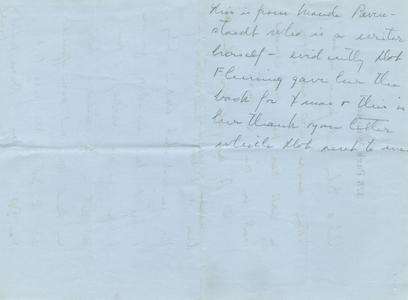 This is from Maude
staudt who is a writer
herself – evidently Dot
Fleming gave her the
book for Xmas & this is
her thank you letter
which Dot sent to me